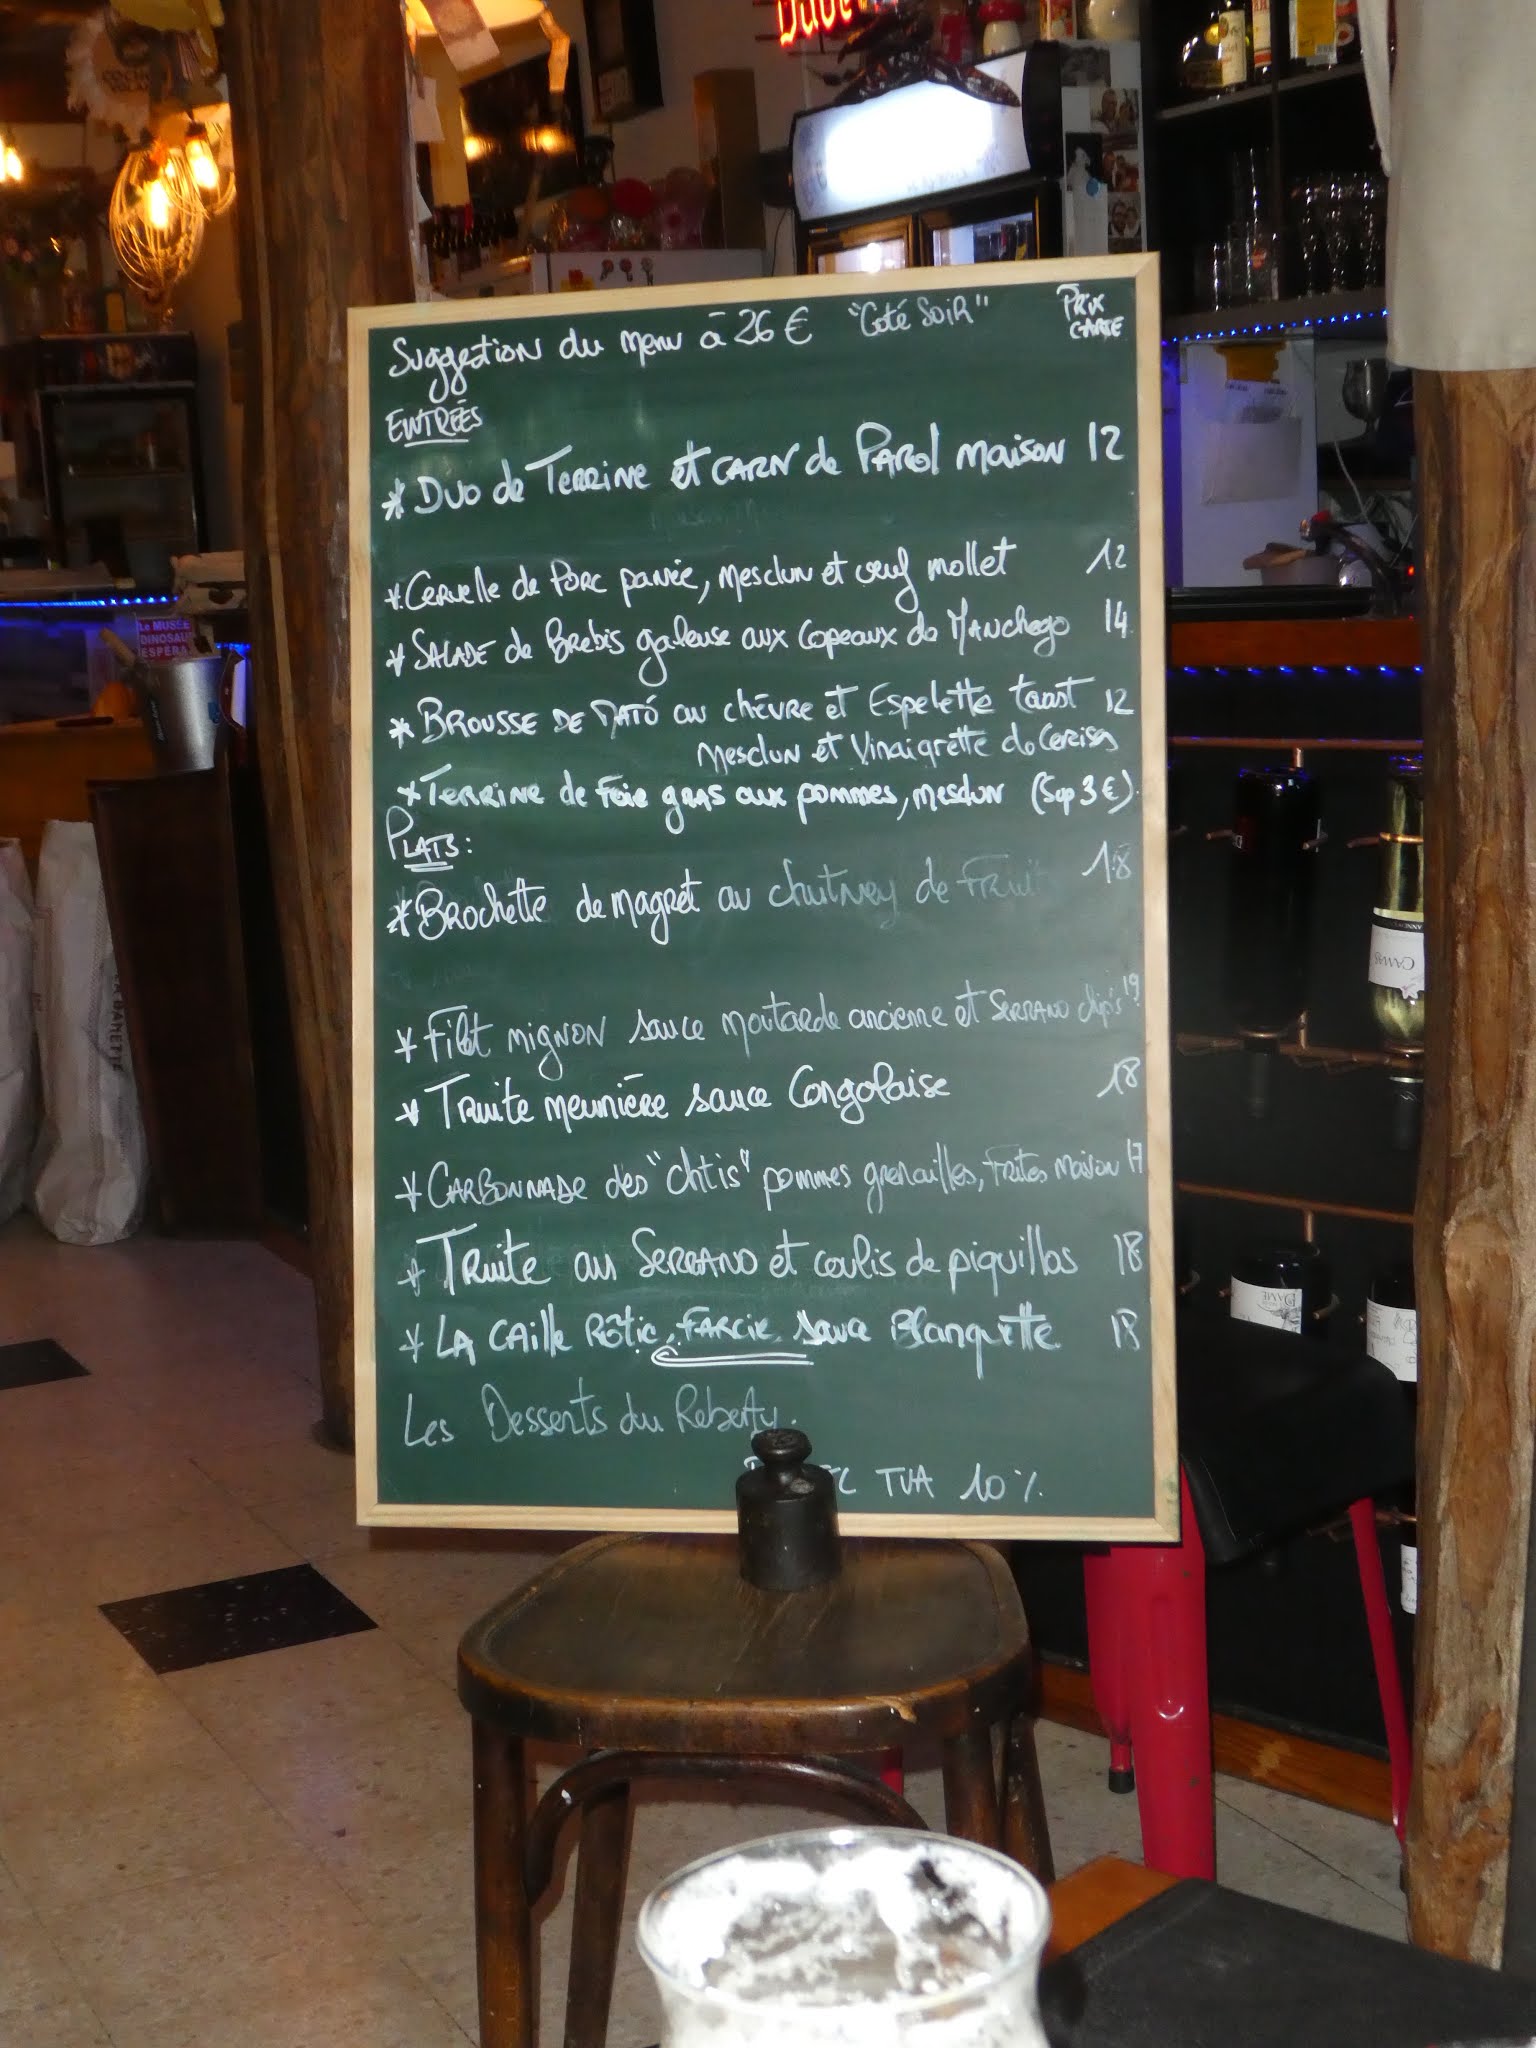 Suggestion du menu à 26 € "Coté Soir" Prix Carte
Entrées
* Duo de Terrine et carn de Parol maison 12
* Cervelle de Porc panée, mesclun et oeuf mollet 12
* Salade de Brebis galeuse aux copeaux de Manchego 14
* Brousse de Mató au chèvre et Espelette toast 12
Mesclun et Vinaigrette de Cerises
* Terrine de Foie gras aux pommes, mesclun (Sup 3 €)
Plats:
* Brochette de magret au chutney de Fruit 18
* Filet mignon sauce moutarde ancienne et Serrano chips 19
* Truite meunière sauce Congolaise 18
* Carbonnade des "chtis" pommes grenailles, Frites maison 17
* Truite au Serrano et coulis de piquillos 18
* La Caille Rôtie, Farcie, sauce Blanquette 18
Les Desserts du Reberty.
TVA 10 %
Le MUSÉE
DINOSAU
ESPÉRA